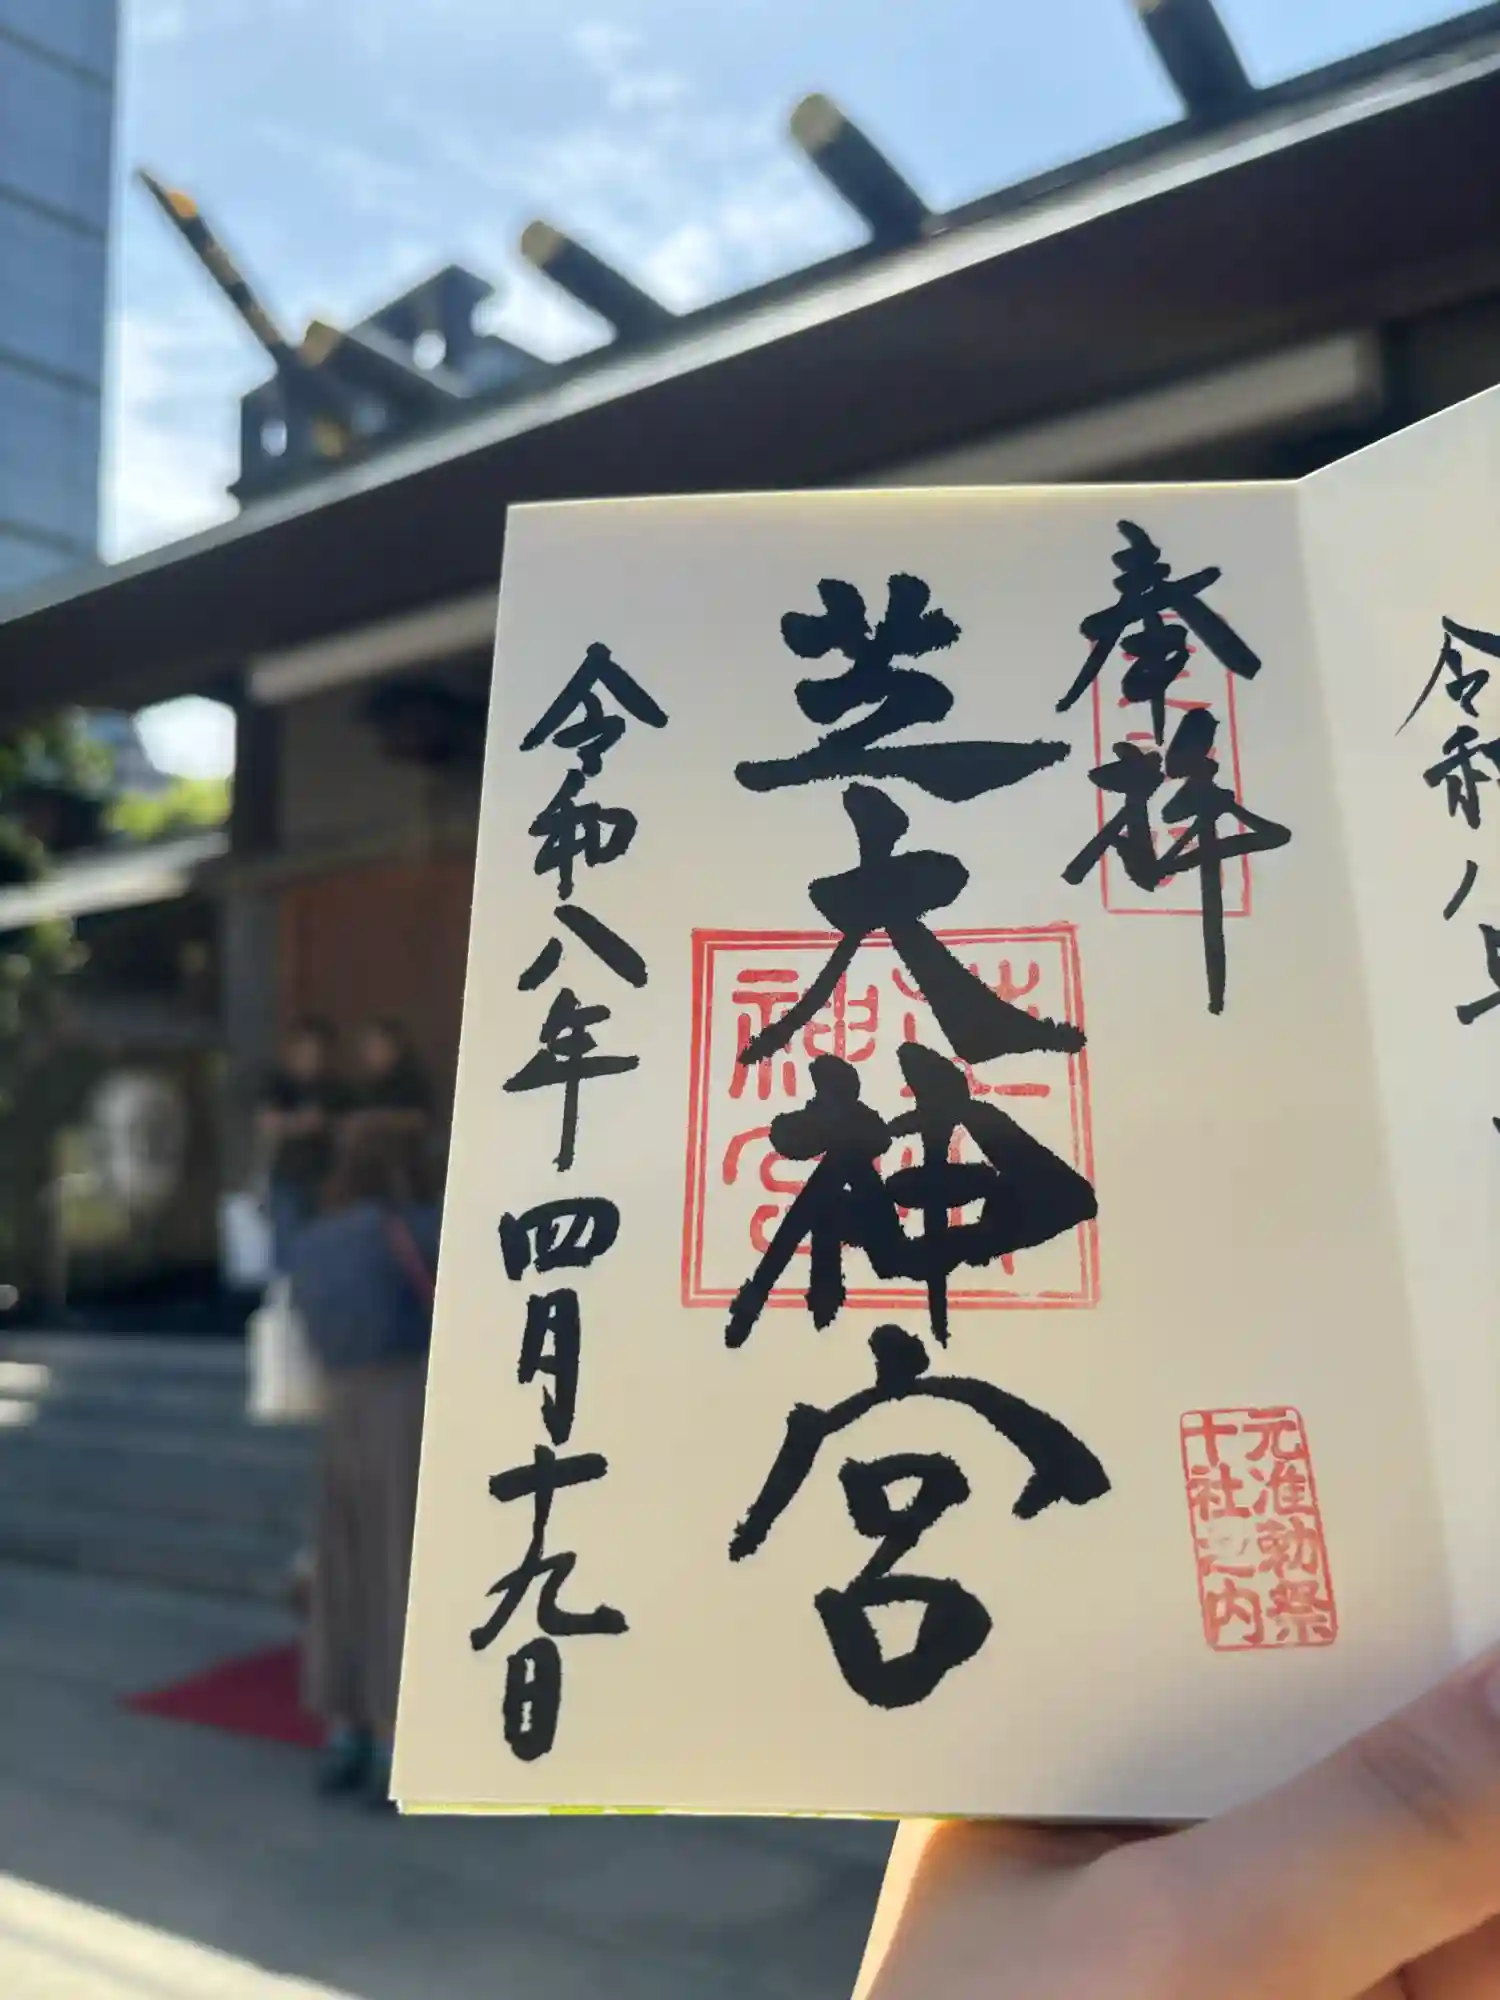 令和八年
奉拝
芝大神宮
令和八年四月十九日
元准勅祭
十社之内